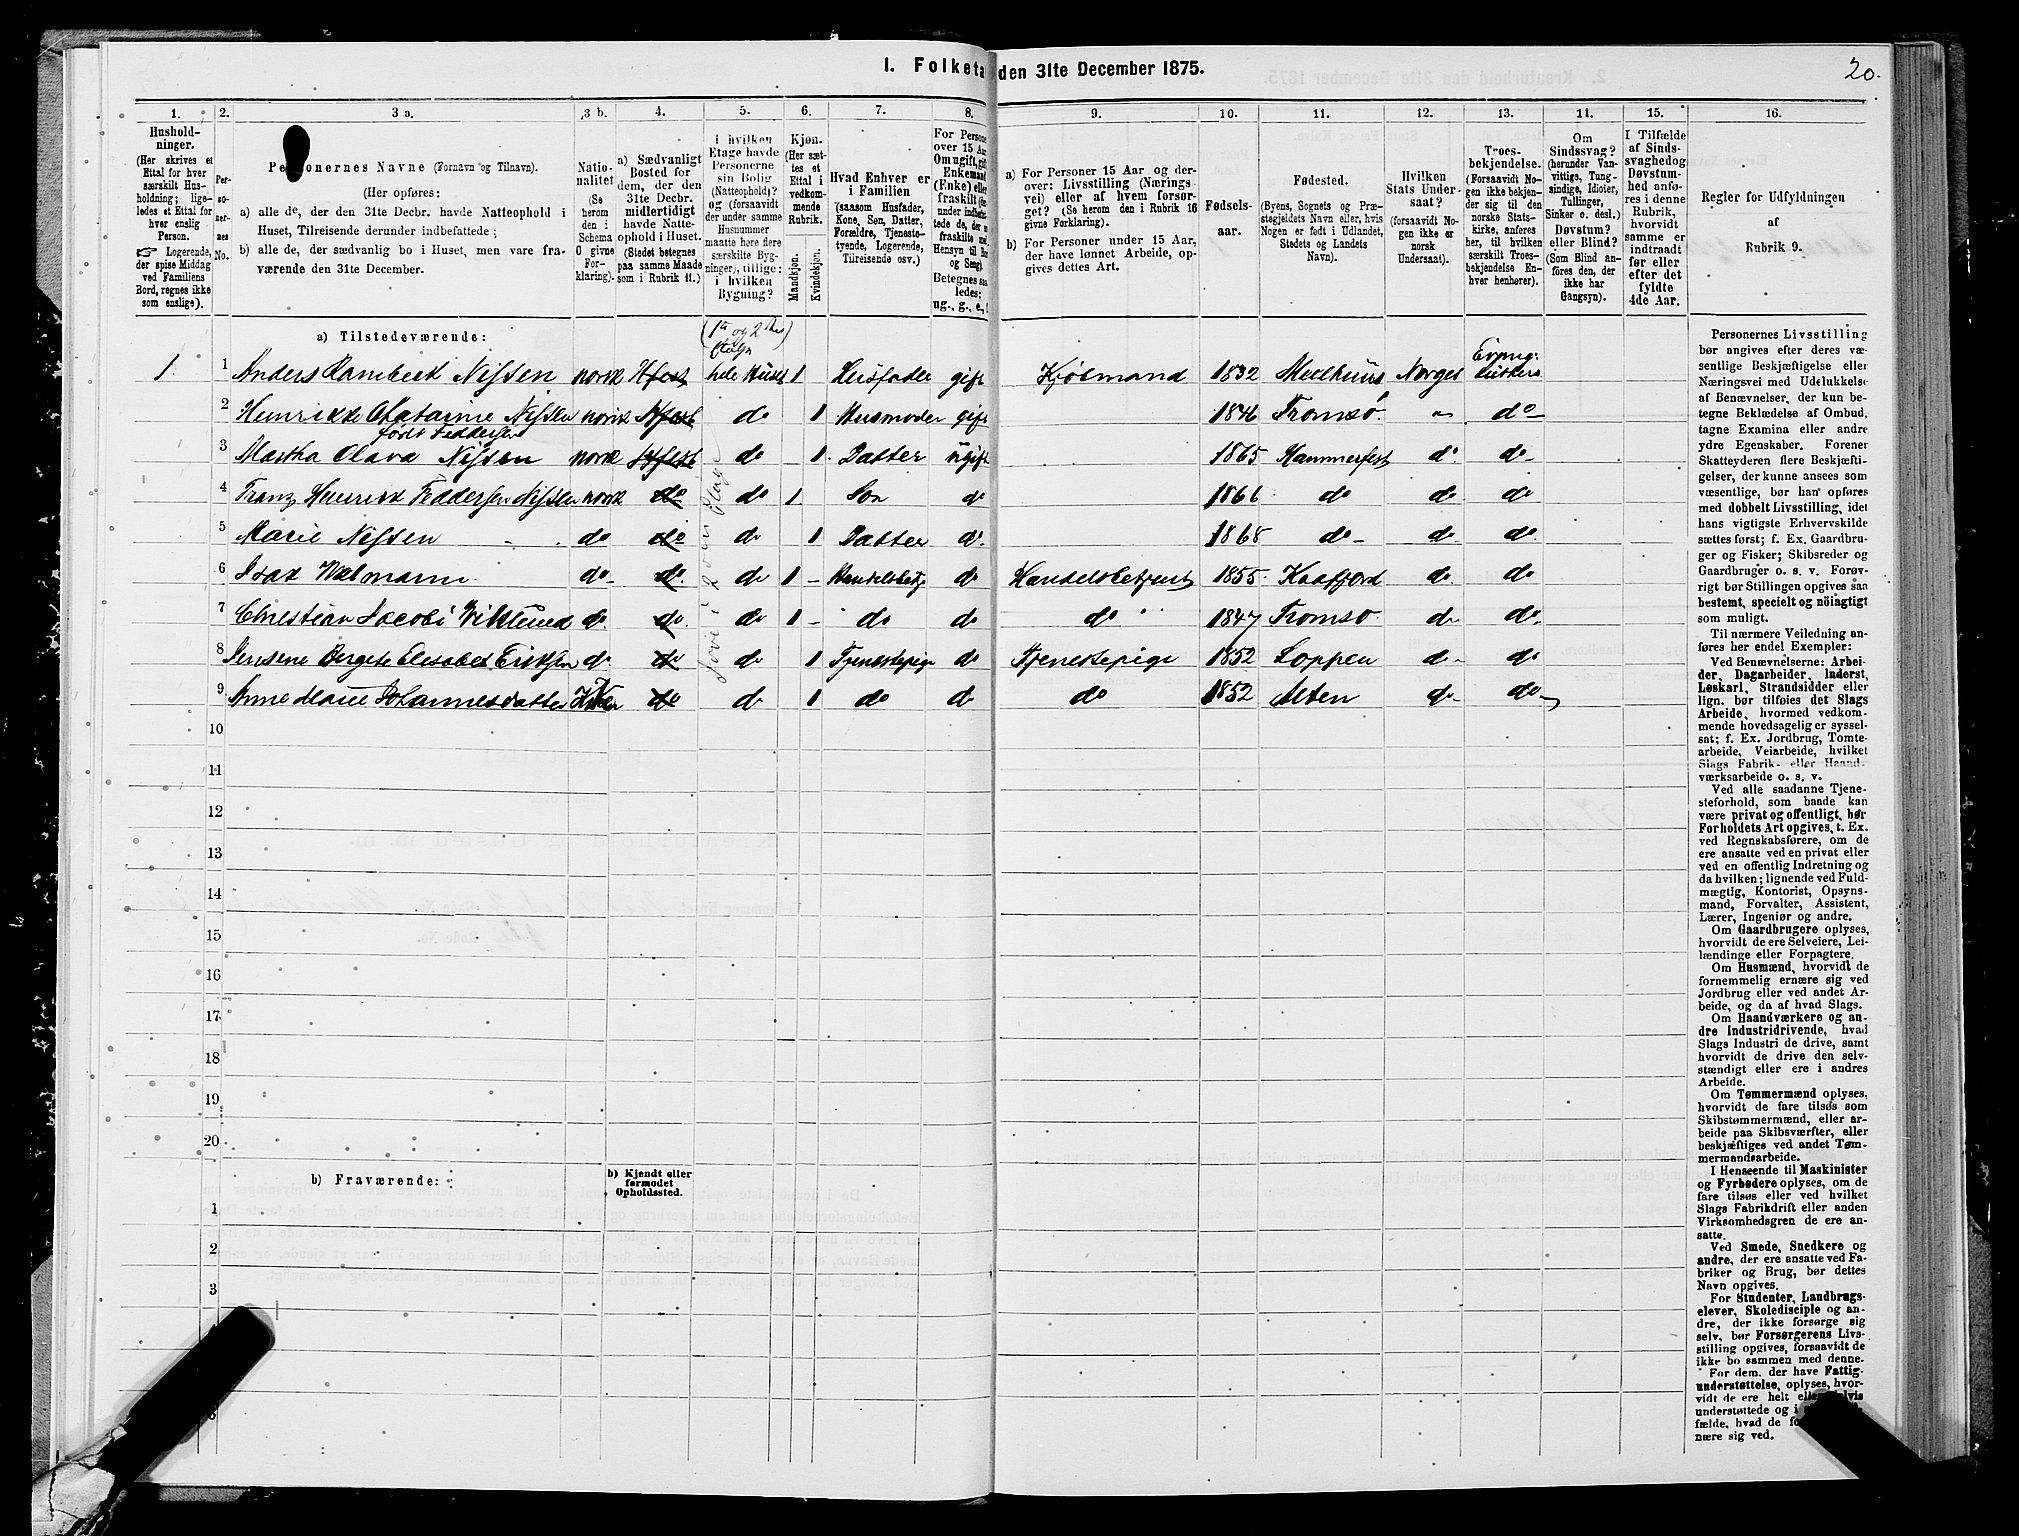 1. Folketa den 31te December 1875.
20.
1. 2. 3 a. 3 b. 4. 5. 6. 7. 8. 9. 10. 11. 12. 13. 14. 15. 16.
Hushold-
ninger.
(Her skrives et
Ettal for hver
særskilt Hus-
holdning; lige-
ledes et Ettal for
hver enslig
Person.
Logerende,
der spise Middag
ved Familiens
Bord, regnes ikke
som enslige).
Per-
so-
ner-
nes
No.
Personernes Navne (Fornavn og Tilnavn).
(Her opføres:
a) alle de, der den 31te Decbr. havde Natteophold i
Huset, Tilreisende derunder indbefattede;
b) alle de, der sædvanlig bo i Huset, men vare fra-
værende den 31te December.
Natio-
nalitet
(Se
herom
den i
Schema
O givne
For-
klaring).
a) Sædvanligt
Bosted for
dem, der den
31te Decbr.
midlertidigt
havde Natte-
ophold i Huset.
(Stedet betegnes
paa samme Maade
som i Rubrik 11.)
I hvilken
Etage havde
Personerne
sin Bolig
(Natteophold)?
og (forsaavidt
der under samme
Husnummer
maatte høre flere
særskilte Byg-
ninger), tillige:
i hvilken
Bygning?
Kjøn.
(Her sæt-
tes et
Ettal i
vedkom-
mende
Rubrik.
Mandkjøn.
Kvindekjøn.
Hvad Enhver er
i Familien
(saasom Husfader,
Kone, Søn, Datter,
Forældre, Tjeneste-
tyende, Logerende,
Tilreisende osv.)
For Persone
over 15 Aar
Om ugift, gift
Enkemand
(Enke) eller
fraskilt
Betegnes saa
ledes:
ug., g., e.,
a) For Personer 15 Aar og der-
over: Livsstilling (Nærings-
vei) eller af hvem forsør-
get? (Se herom den i Rubrik 16
givne Forklaring).
b) For Personer under 15 Aar,
der have lønnet Arbeide, op-
gives dettes Art.
Fødsels-
aar.
Fødested.
(Byens, Sognets og Præ-
stegjeldets Navn eller, hvis
Nogen er født i Udlandet,
Stedets og Landets
Navn).
Hvilken
Stats Under-
saat?
(forsaavidt No-
gen ikke er
norsk
Undersaat).
Troes-
bekjendelse.
(Forsaavidt No-
gen ikke bekjen-
der sig til den
norske Stats-
kirke, anføres
her, til hvilken
særskilt Troes-
bekjendelse En-
hver henhører).
Om
Sindssvag?
(herunder Van-
vittige, Tung-
sindige, Idioter,
Tullinger,
Sinker o. desl.)
Døvstum?
eller Blind?
(Som Blind an-
føres den, der
ikke har
Gangsyn).
I Tilfælde
af Sinds-
svaghed og
Døvstum-
hed anfø-
res i denne
Rubrik,
hvorvidt
samme er
indtraadt
før eller
efter det
fyldte
4de Aar.
Regler for Udfyldningen
af
Rubrik 9.
a) Tilstedeværende:
(1te og 2den
Etage
1 1 Anders Rambeck Nissen norsk Hfest hele Huset 1 Husfader gift Kjøbmand 1832 Meelhuus Norges Evang: luthers
2 Henrikke Catarine Nissen norsk Hfest do 1 Husmoder gift 1846 Tromsø " do
født Feddersen
3 Martha Olava Nissen norsk Hfest do 1 Datter ugift 1865 Hammerfest do do
4 Franz Henrick Feddersen Nissen norsk do do 1 Søn do 1866 do do do
5 Marie Nissen do do do 1 Datter do 1868 do do do
6 Isak Walmann do do do 1 Handelsbetj do Handelsbetjent 1855 Kaafjord do do
7 Christian Jacobi Wiklund do do do 1 do do do 1847 Tromsø do do
8 Jensene Bergete Elesabet Eriksen do do do 1 Tjenestepige do Tjenestepige 1852 Loppen do do
9 Anne Marie Johannesdatter do do 1 do do do 1852 Alten do do
10
11
12
13
14
15
16
17
18
19
20
b) Fraværende:
b) Kjendt eller
formodet
Opholdssted.
1
2
3
Personernes Livsstilling
bør angives efter deres væ-
sentlige Beskjæftigelse eller
Næringsvei med Udelukkelse
af Benævnelser, der kun be-
tegne Beklædelse af Ombud,
tagne Examina eller andre
ydre Egenskaber. Forener
Skatteyderen flere Beskjæfti-
gelser, der kunne ansees som
væsentlige, bør han opføres
med dobbelt Livsstilling, idet
hans vigtigste Erhvervskilde
sættes først; f. Ex. Gaardbru-
ger og Fisker; Skibsreder og
Gaardbruger o. s. v. Forøv-
rigt bør Stillingen opgives saa
bestemt, specielt og nöiagtigt
som muligt.
Til nærmere Veiledning an-
føres her endel Exempler:
Ved Benævnelserne: Arbei-
der, Dagarbeider, Inderst,
Løskarl, Strandsidder eller
lign. bør tilføies det Slags
Arbeide, hvormed vedkom-
mende hovedsagelig er syssel-
sat; f. Ex. Jordbrug, Tomte-
arbeide, Veiarbeide, hvilket
Slags Fabrik- eller Haand-
værksarbeide o. s. v.
Ved alle saadanne Tjene-
steforhold, som baade kan
være privat og offentligt, bør
Forholdets Art opgives, t. Ex.
ved Regnskabsførere, om de
ere ansatte ved en privat eller
ved en offentlig Indretning og
da hvilken; lignende ved Fuld-
mægtig, Kontorist, Opsyns-
mand, Forvalter, Assistent,
Lærer, Ingeniør og andre.
Om Gaardbrugere oplyses,
hvorvidt de ere Selveiere, Lei-
lændinge eller Forpagtere.
Om Husmænd, hvorvidt de
fornemmelig ernære sig ved
Jordbrug eller ved andet Ar-
beide, og da af hvad Slags.
Om Haandværkere og an-
dre Industridrivende, hvad
Slags Industri de drive, samt
hvorvidt de drive den selv-
stændigt eller ere i andres
Arbeide.
Om Tømmermænd oplyses,
hvorvidt de fare tilsøs som
Skibstømmermænd, eller ar-
beide paa Skibsværfter, eller
beskjæftiges ved andet Tøm-
mermandsarbeide.
I Henseende til Maskinister
og Fyrbødere oplyses, om de
fare tilsøs eller ved hvilket
Slags Fabrikdrift eller anden
Virksomhedsgren de ere an-
satte.
Ved Smede, Snedkere og
andre, der ere ansatte ved Fa-
briker og Brug, bør dettes
Navn opgives.
For Studenter, Landbrugs-
elever, Skoledisciple og an-
dre, der ikke forsørge sig
selv, bør Forsørgerens Livs-
stilling opgives, forsaavidt de
ikke bo sammen med denne.
For dem, der have Fattig-
understøttelse, oplyses, hvor-
vidt de ere helt eller delvis
understøttede og i
fælde, hvad de
nære sig ved.